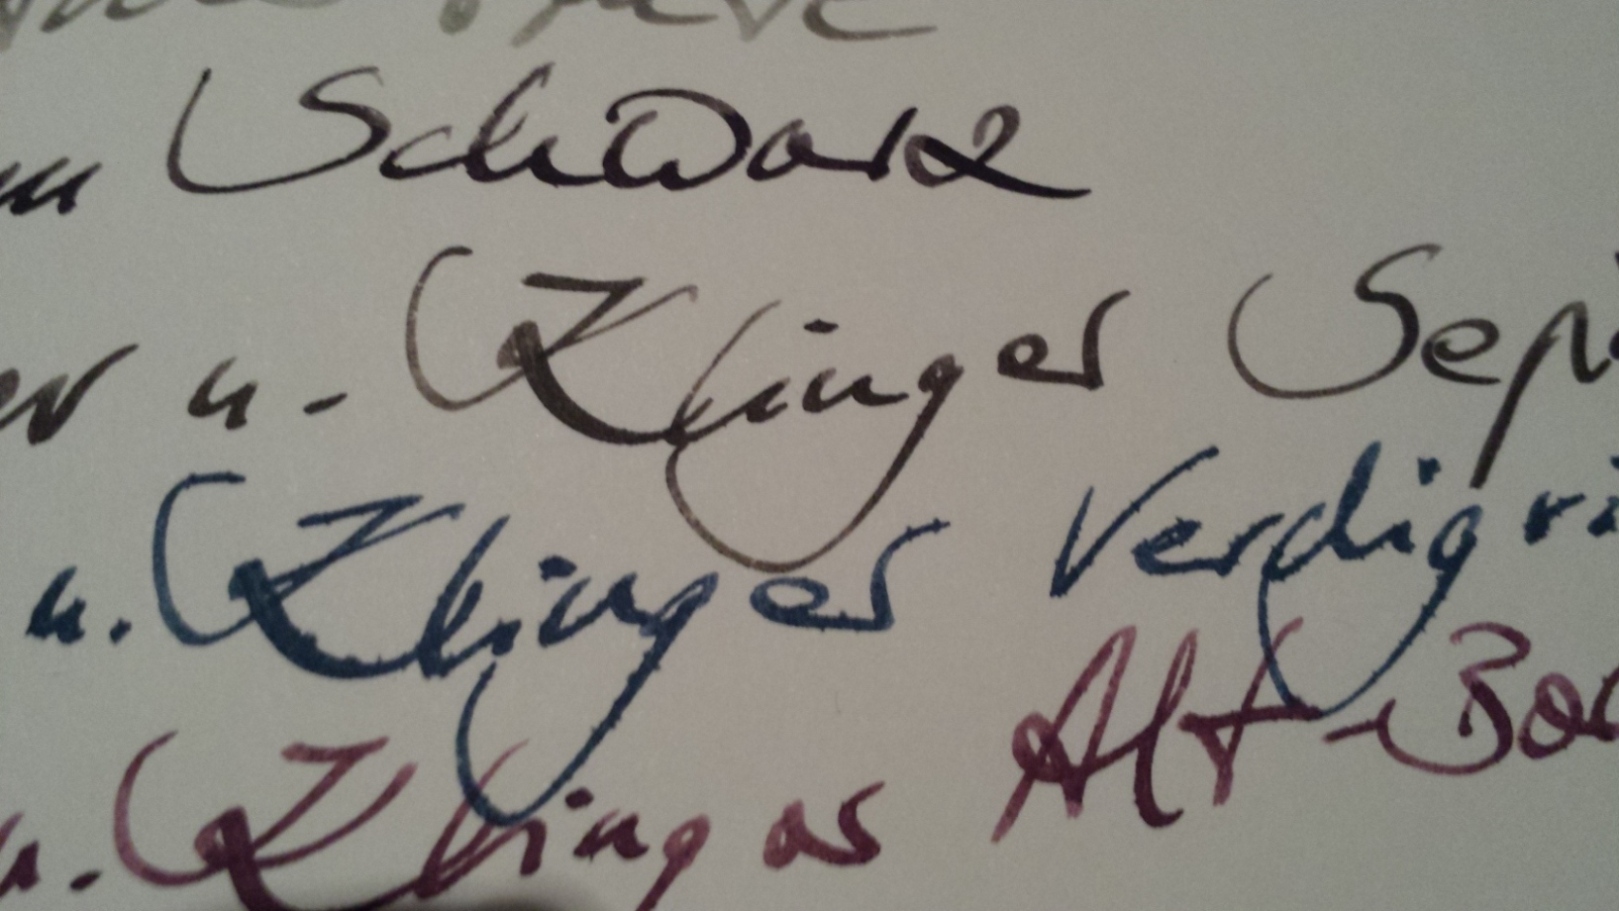 Schwarz
er u. Klinger Sep
u. Klinger Verdigri
u. Klinger Alt-Bor